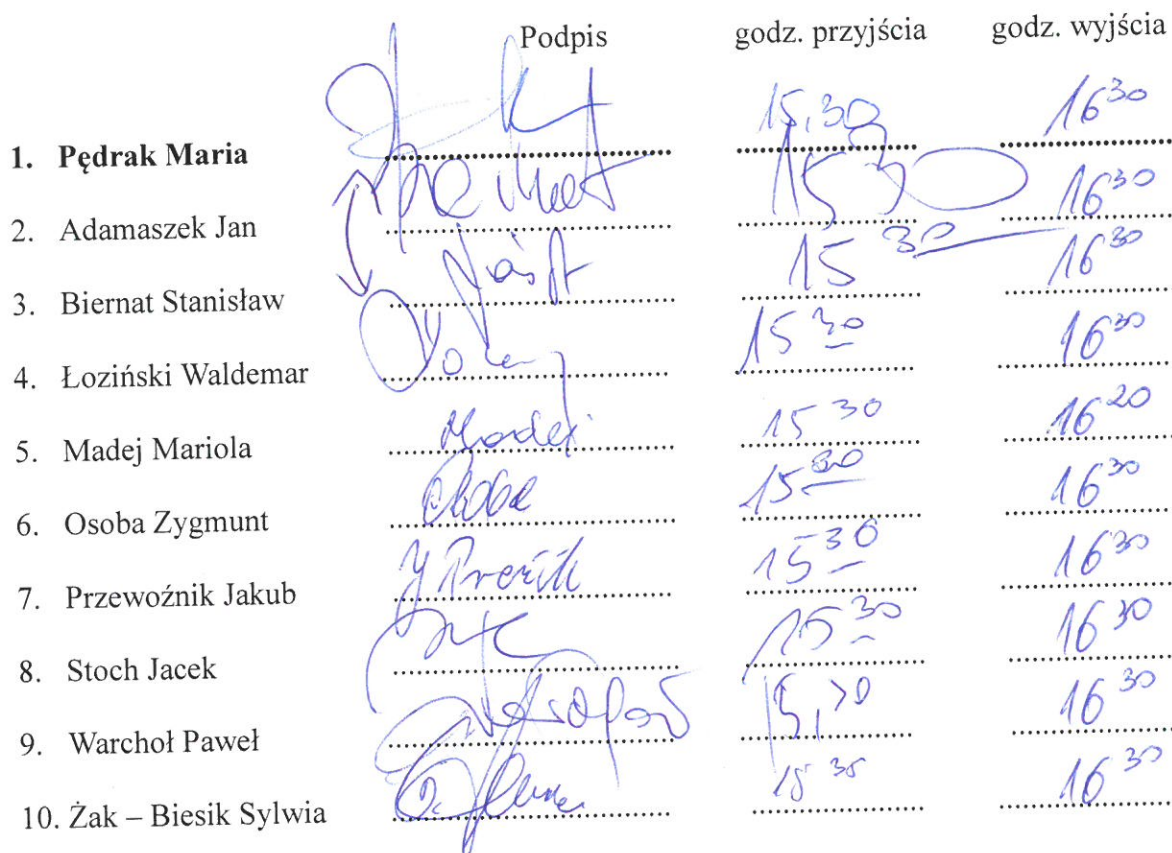 Podpis godz. przyjścia godz. wyjścia
1. Pędrak Maria 15,30 16 30
2. Adamaszek Jan 15 30 16 30
3. Biernat Stanisław 15 30 16 30
4. Łoziński Waldemar 15 30 16 30
5. Madej Mariola Madej 15 30 16 20
6. Osoba Zygmunt Osoba 15 30 16 30
7. Przewoźnik Jakub 15 30 16 30
8. Stoch Jacek 15 30 16 30
9. Warchoł Paweł 16 30
10. Żak – Biesik Sylwia 16 30